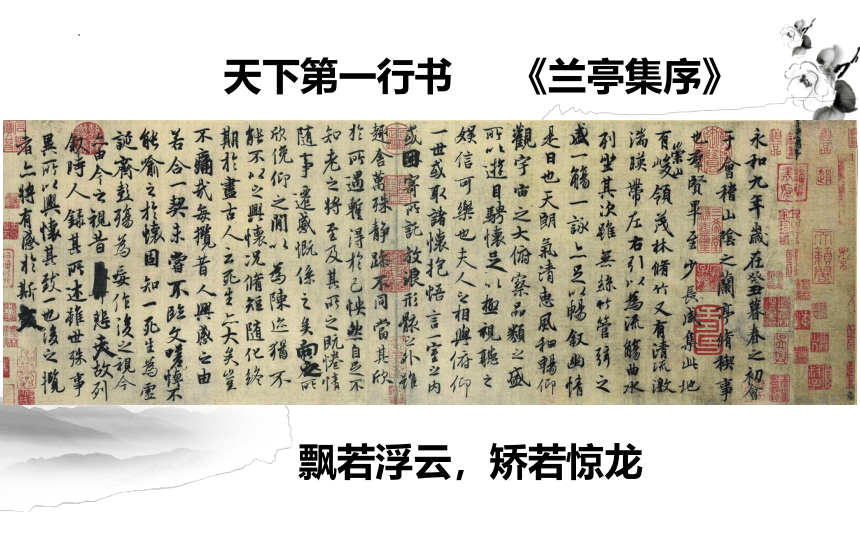 天下第一行书 《兰亭集序》
永和九年歲在癸丑暮春之初會
于會稽山陰之蘭亭脩禊事
也羣賢畢至少長咸集此地
有崇山峻領茂林脩竹又有清流激
湍暎帶左右引以為流觴曲水
列坐其次雖無絲竹管弦之
盛一觴一詠亦足以暢叙幽情
是日也天朗氣清惠風和暢仰
觀宇宙之大俯察品類之盛
所以遊目騁懷足以極視聽之
娛信可樂也夫人之相與俯仰
一世或取諸懷抱悟言一室之内
或因寄所託放浪形骸之外雖
趣舍萬殊靜躁不同當其欣
於所遇暫得於己怏然自足不
知老之將至及其所之既惓情
隨事遷感慨係之矣向之所
欣俛仰之閒以為陳迹猶不
能不以之興懷況脩短隨化終
期於盡古人云死生亦大矣豈
不痛哉每攬昔人興感之由
若合一契未嘗不臨文嗟悼不
能喻之於懷固知一死生為虛
誕齊彭殤為妄作後之視今
亦由今之視昔悲夫故列
叙時人錄其所述雖世殊事
異所以興懷其致一也後之攬
者亦將有感於斯文
飘若浮云，矫若惊龙